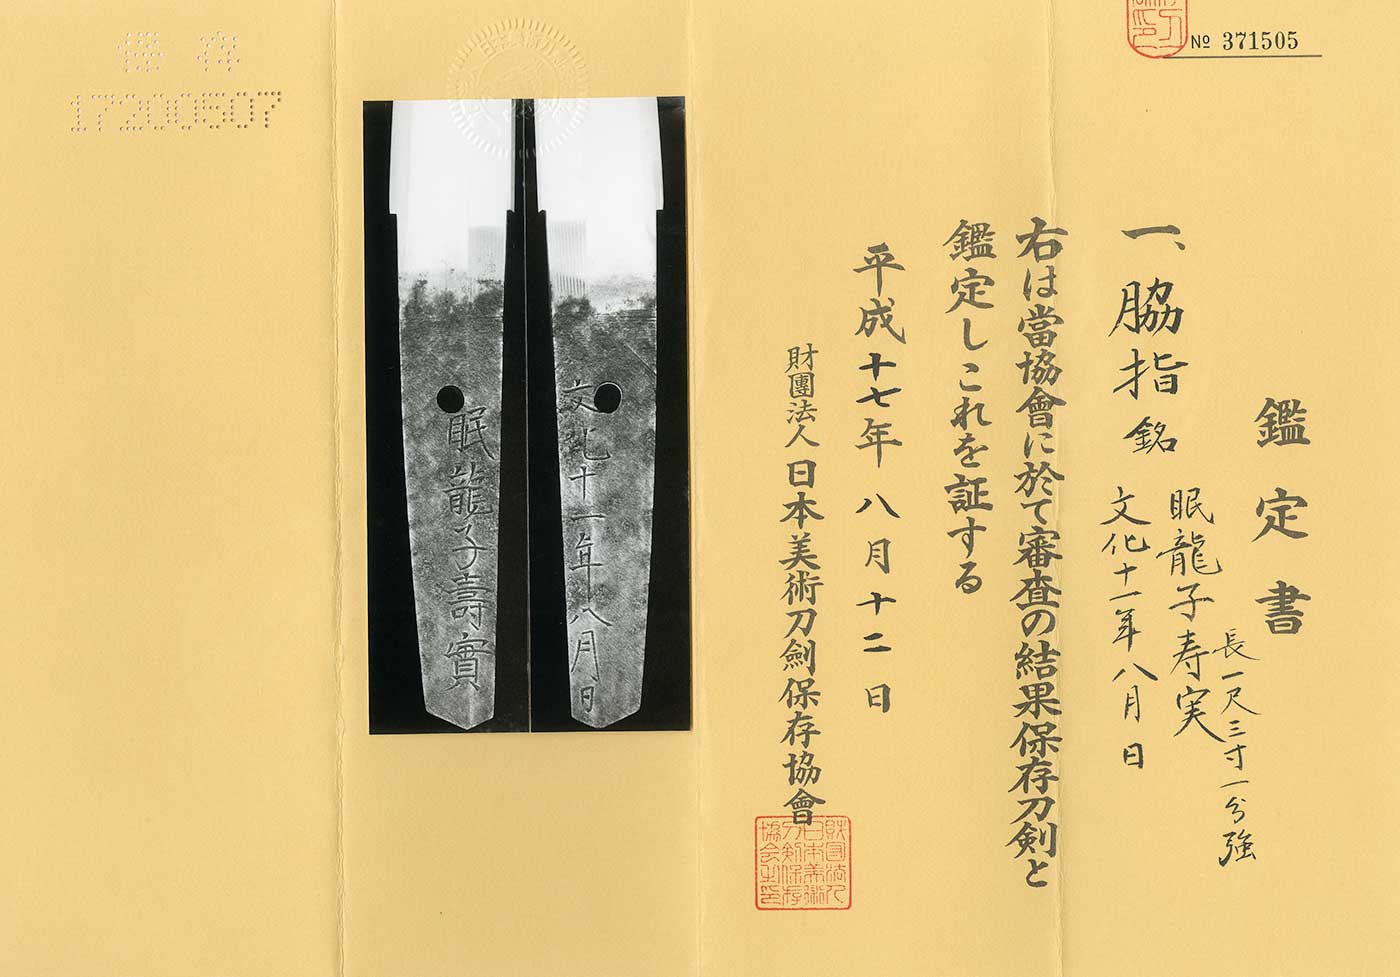 No 371505
鑑定書
一、脇指 銘 眠龍子寿実
文化十一年八月日
長一尺三寸一分強
右は當協會に於て審査の結果保存刀剣と
鑑定しこれを証する
平成十七年八月十二日
財團法人日本美術刀劍保存協會
財団法人
日本美術
刀剣保存
協会之印
保存
17200507
眠龍子壽實
文化十一年八月日